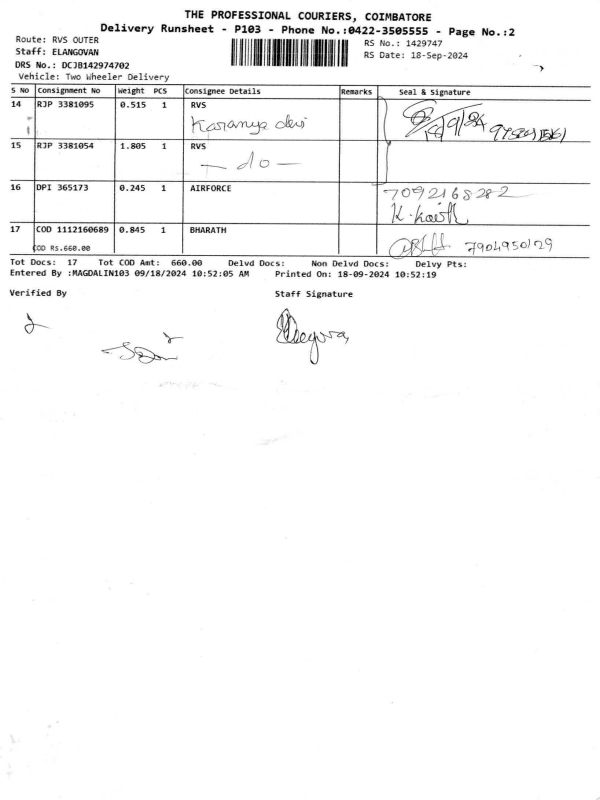 THE PROFESSIONAL COURIERS, COIMBATORE
Delivery Runsheet - P103 - Phone No.:0422-3505555 - Page No.:2
Route: RVS OUTER
RS No.: 1429747
Staff: ELANGOVAN
RS Date: 18-Sep-2024
DRS No.: DCJB142974702
Vehicle: Two Wheeler Delivery
S No Consignment No Weight PCS Consignee Details Remarks Seal & Signature
14 RJP 3381095 0.515 1 RVS
Karanya devi
15 RJP 3381054 1.805 1 RVS
— do —
16 DPI 365173 0.245 1 AIRFORCE 7092168282
17 COD 1112160689 0.845 1 BHARATH
COD Rs.660.00 7904950129
Tot Docs: 17 Tot COD Amt: 660.00 Delvd Docs: Non Delvd Docs: Delvy Pts:
Entered By :MAGDALIN103 09/18/2024 10:52:05 AM Printed On: 18-09-2024 10:52:19
Verified By Staff Signature